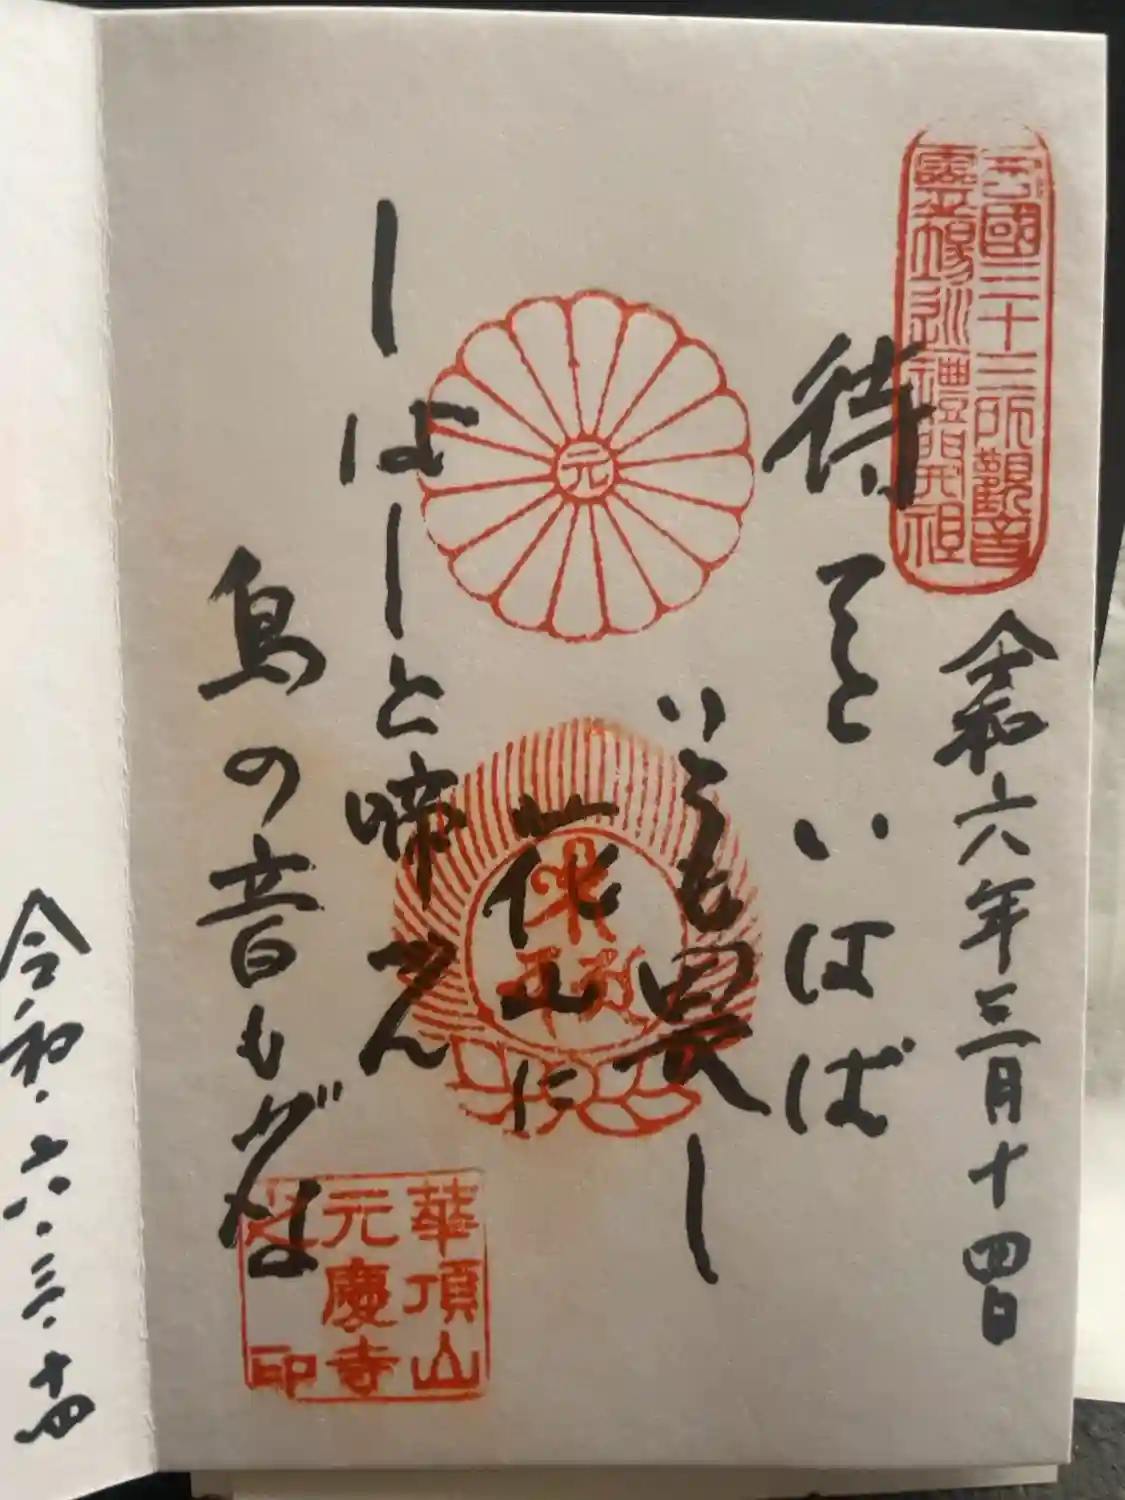 西國三十三所觀音
靈場巡禮開祖
令和六年三月十四日
待てといはば
いとも畏し
花山に
しはしと啼かん
鳥の音もがな
元
華頂山
元慶寺
之印
令和・六・三・十四